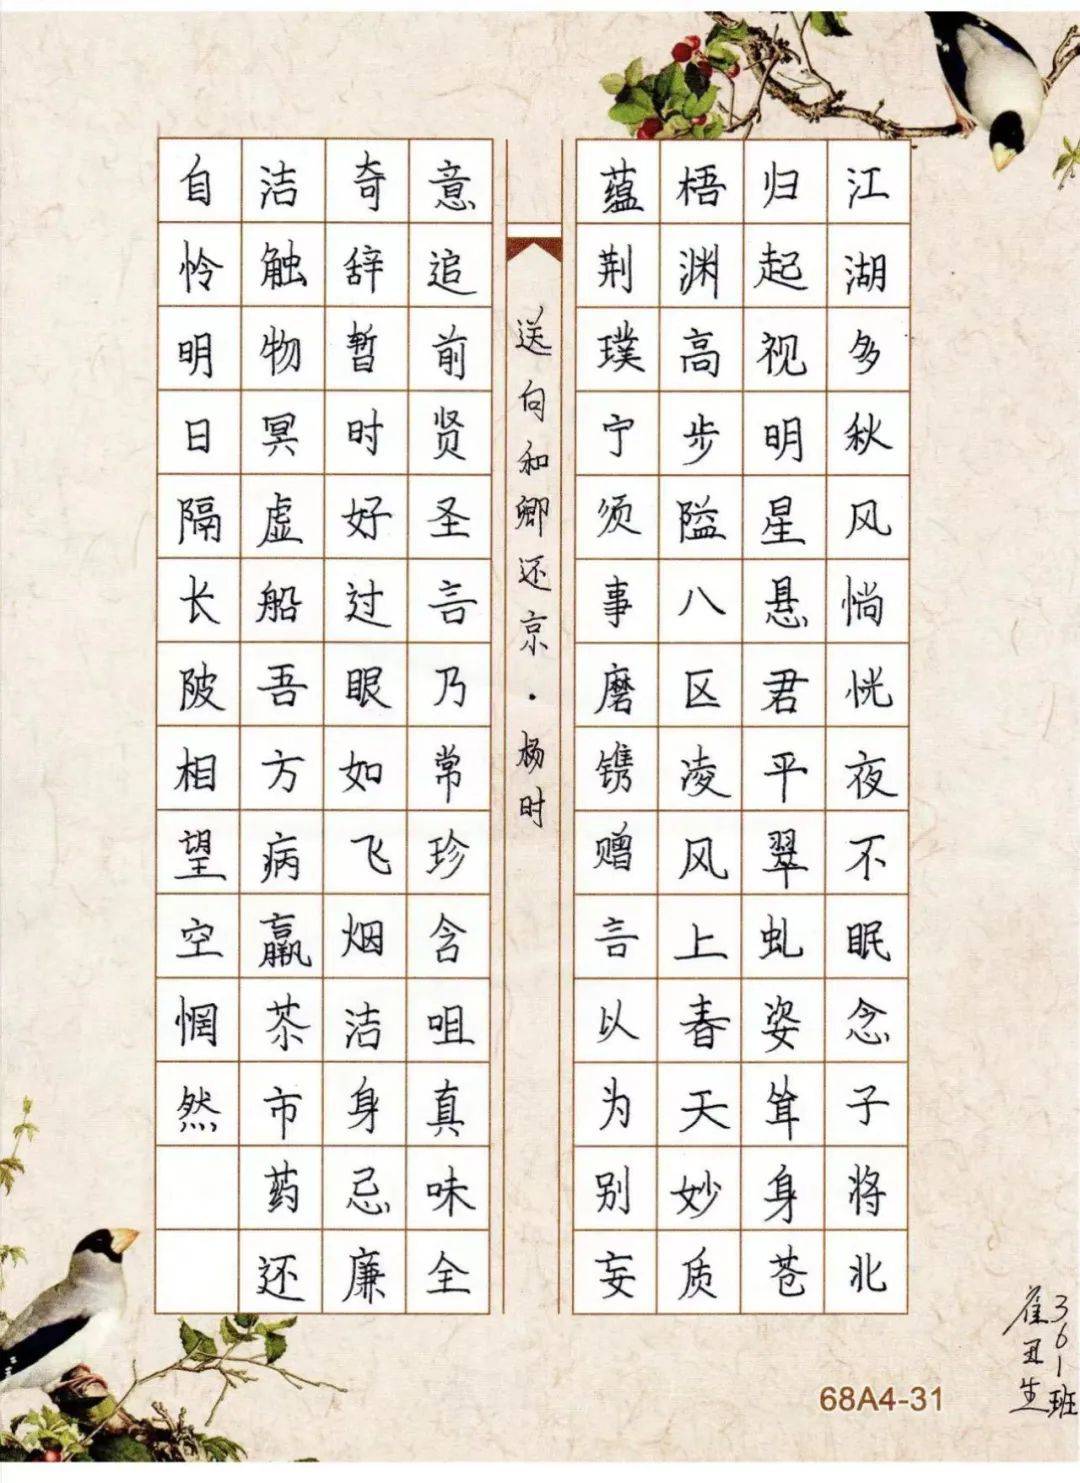 江湖多秋风惝恍夜不眠念子将北
归起视明星悬君平翠虬姿耸身苍
梧渊高步隘八区凌风上春天妙质
蕴荆璞宁须事磨镌赠言以为别妄
送向和卿还京·杨时
意追前贤圣言乃常珍含咀真味全
奇辞暂时好过眼如飞烟洁身忌廉
洁触物冥虚船吾方病羸苶市药还
自怜明日隔长陂相望空惘然
崔丑生
361班
68A4-31